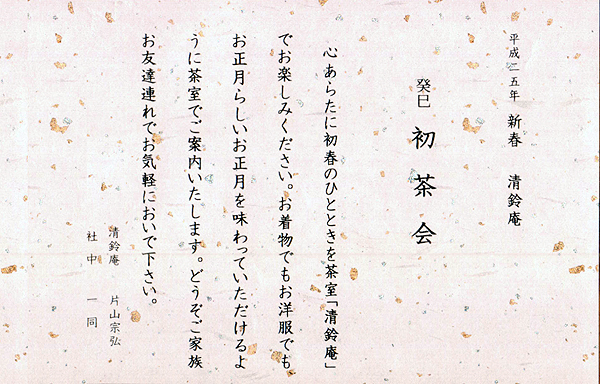 平成二五年 新春 清鈴庵
癸巳 初茶会
心あらたに初春のひとときを茶室「清鈴庵」
でお楽しみください。お着物でもお洋服でも
お正月らしいお正月を味わっていただけるよ
うに茶室でご案内いたします。どうぞご家族
お友達連れでお気軽においで下さい。
清鈴庵 片山宗弘
社中 一同